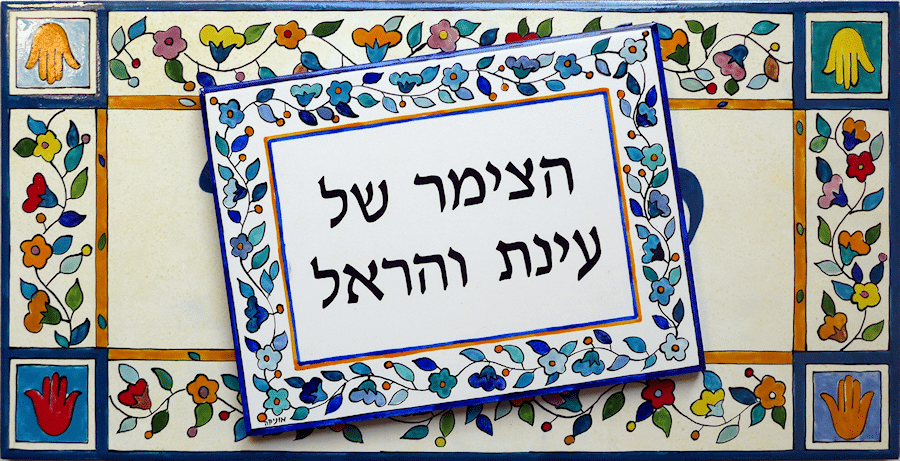 הצימר של
עינת והראל